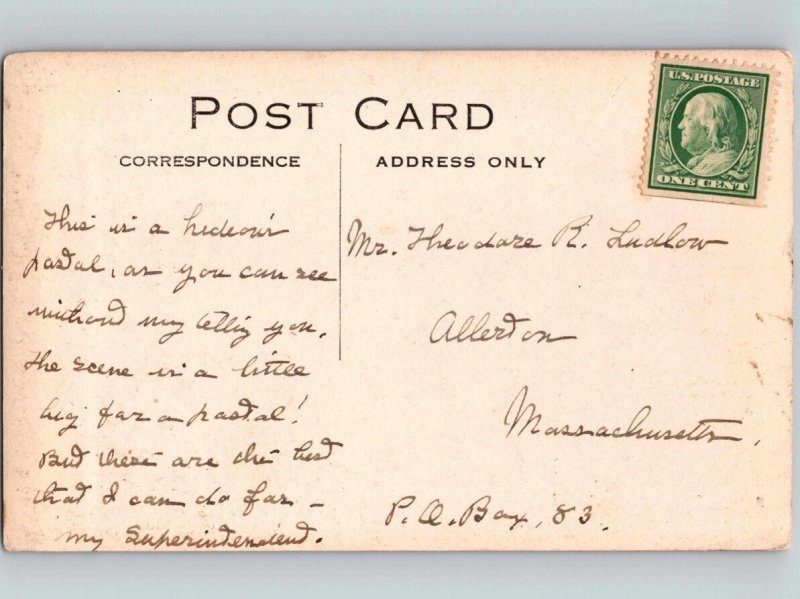 POST CARD
CORRESPONDENCE
ADDRESS ONLY
U.S. POSTAGE
ONE CENT
This is a hideous
postal, as you can see
without my telling you.
The scene is a little
big for a postal!
But these are the best
that I can do for –
my Superintendent.
Mr. Theodore R. Ludlow
Allerton
Massachusetts,
P.O. Box, 83.